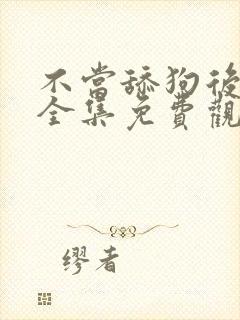 不當舔狗後
全集免費觀
繆者